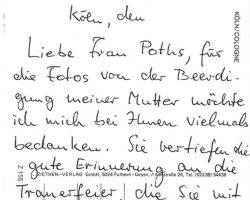 Köln, den
Liebe Frau Poths, für
die Fotos von der Beerdi-
gung meiner Mutter möchte
ich mich bei Ihnen vielmals
bedanken. Sie vertiefen die
gute Erinnerung an die
ZIETHEN-VERLAG GmbH, 5024 Pulheim-Geyen, Tel. (02238) 54438
Trauerfeier, die Sie mit
KÖLN/COLOGNE